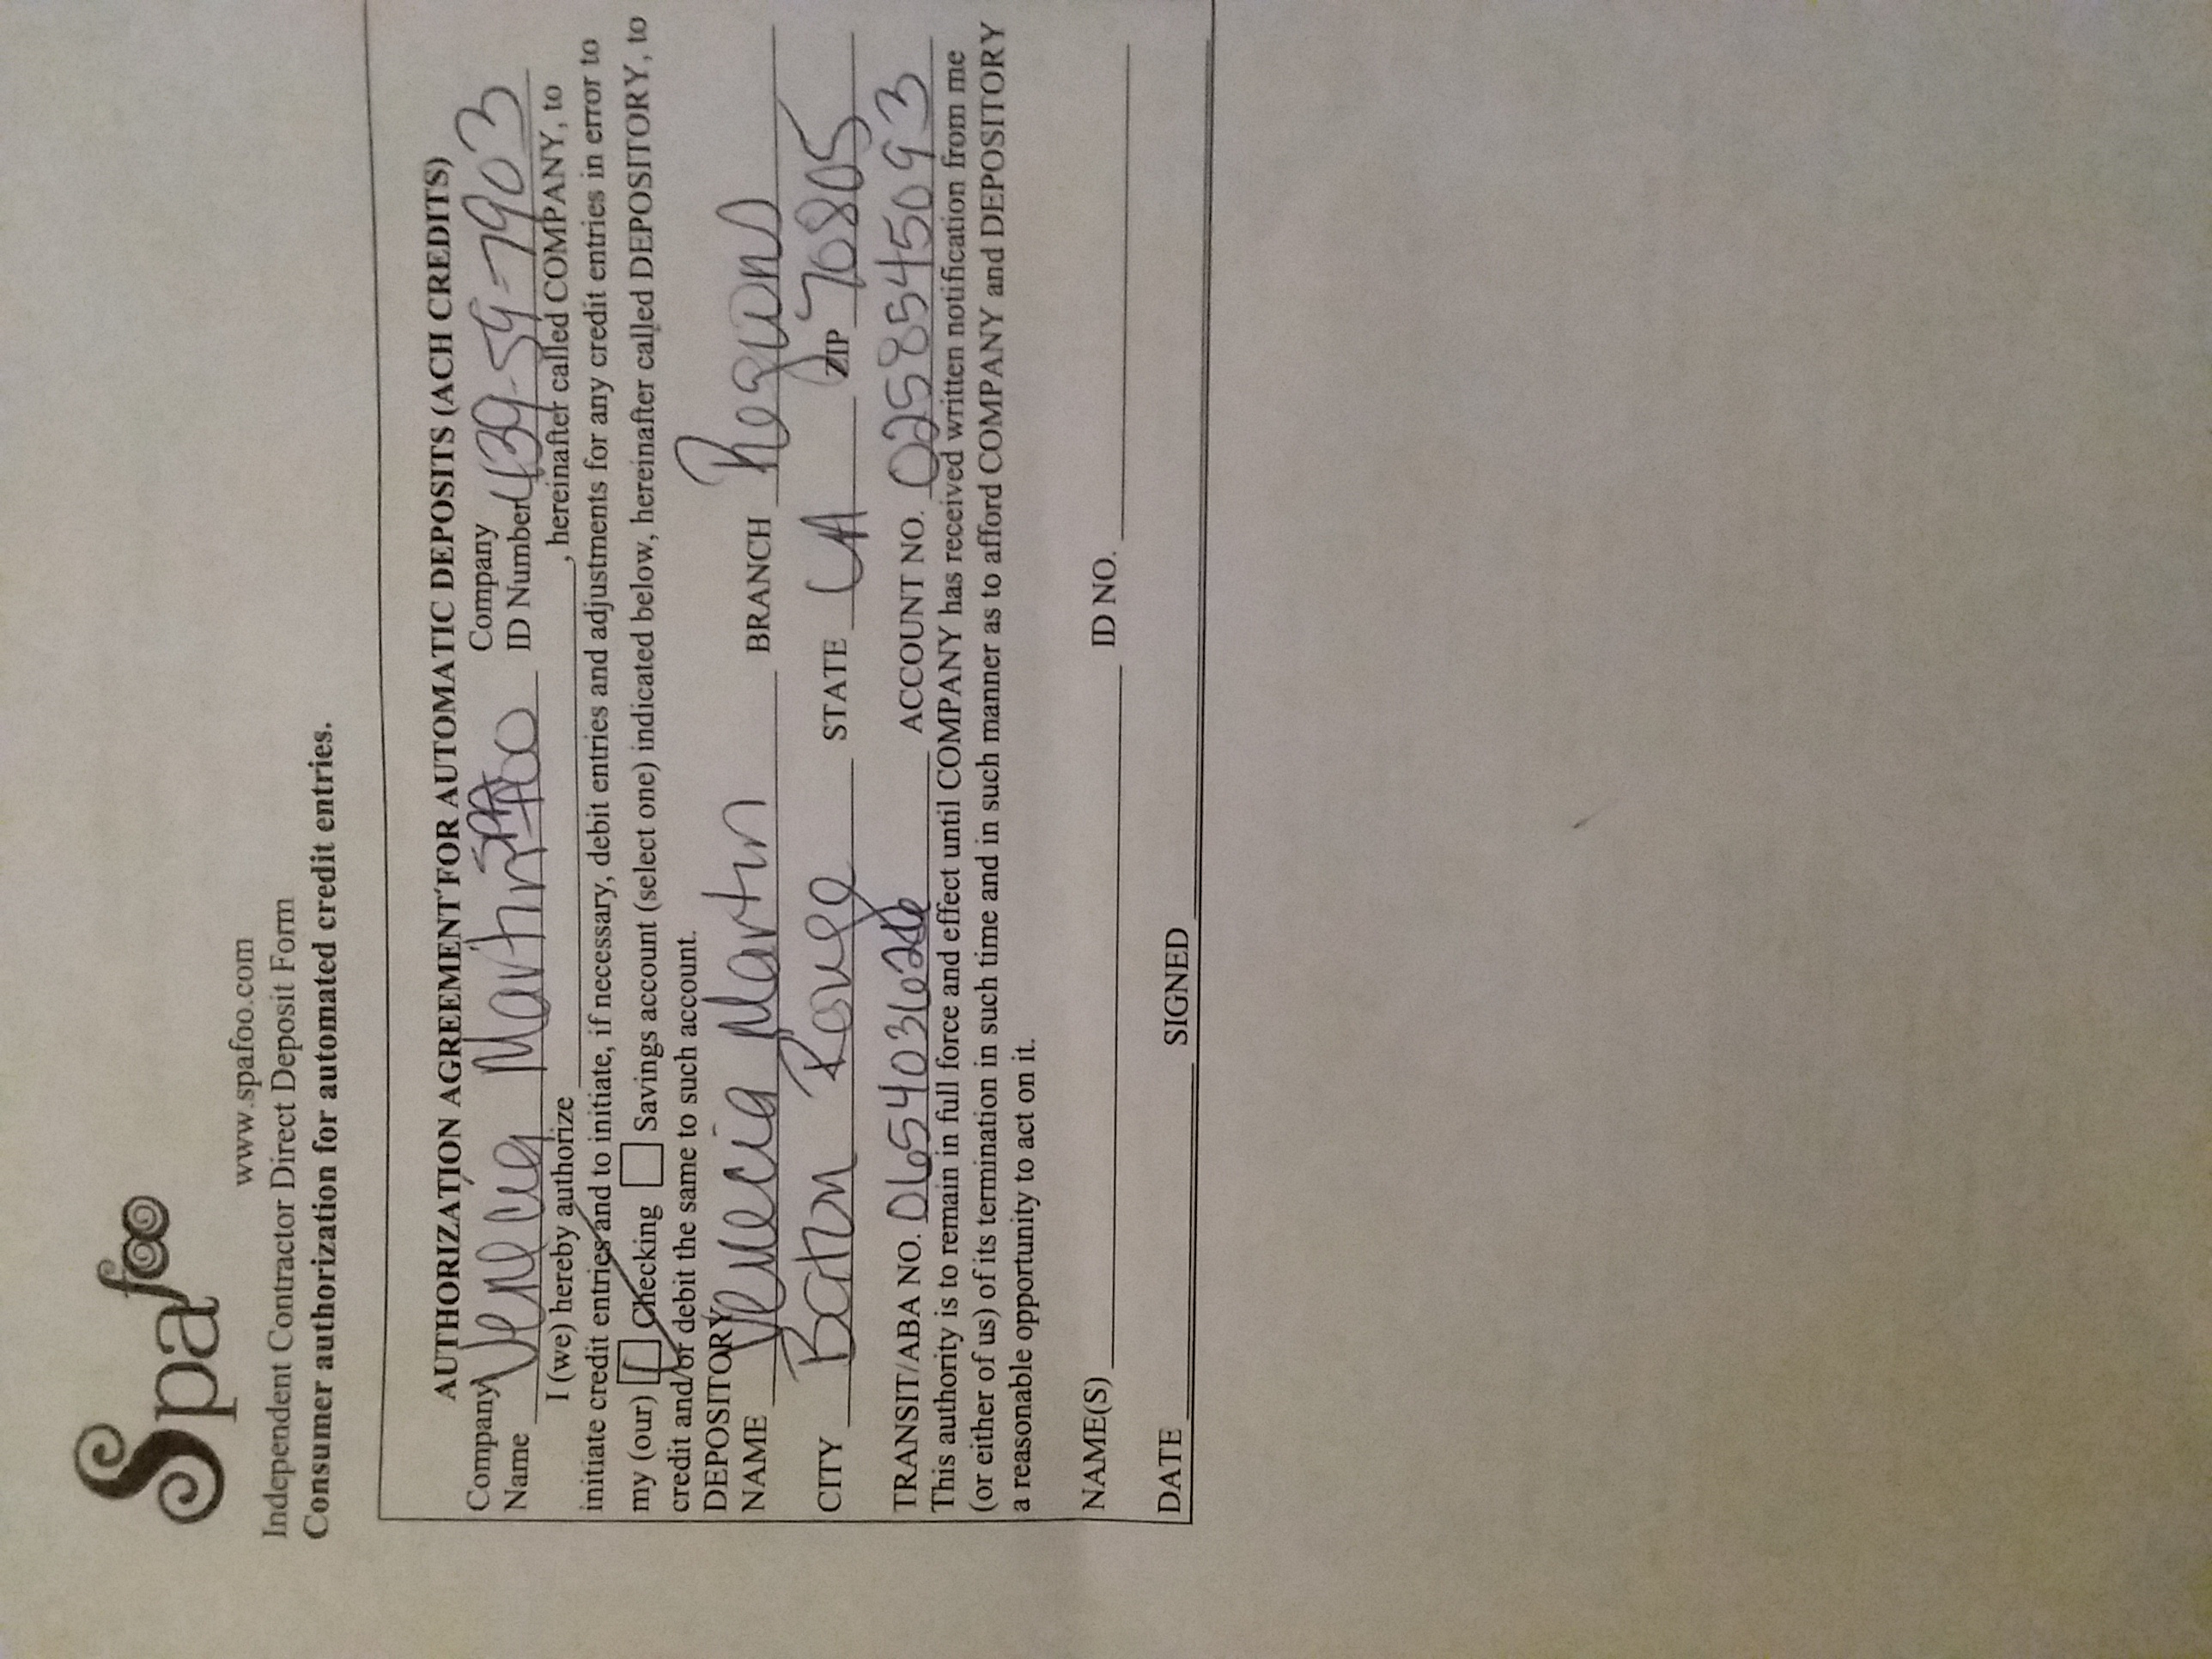 Spafoo
www.spafoo.com
Independent Contractor Direct Deposit Form
Consumer authorization for automated credit entries.
AUTHORIZATION AGREEMENT FOR AUTOMATIC DEPOSITS (ACH CREDITS)
Company Company
Name Venecia Martin SPAfoo ID Number
I (we) hereby authorize , hereinafter called COMPANY, to
initiate credit entries and to initiate, if necessary, debit entries and adjustments for any credit entries in error to
my (our) Checking Savings account (select one) indicated below, hereinafter called DEPOSITORY, to
credit and/or debit the same to such account.
DEPOSITORY
NAME Venecia Martin BRANCH Regions
CITY Baton Rouge STATE LA ZIP 70805
TRANSIT/ABA NO. 065403626 ACCOUNT NO. 0258545093
This authority is to remain in full force and effect until COMPANY has received written notification from me
(or either of us) of its termination in such time and in such manner as to afford COMPANY and DEPOSITORY
a reasonable opportunity to act on it.
NAME(S) ID NO.
DATE SIGNED